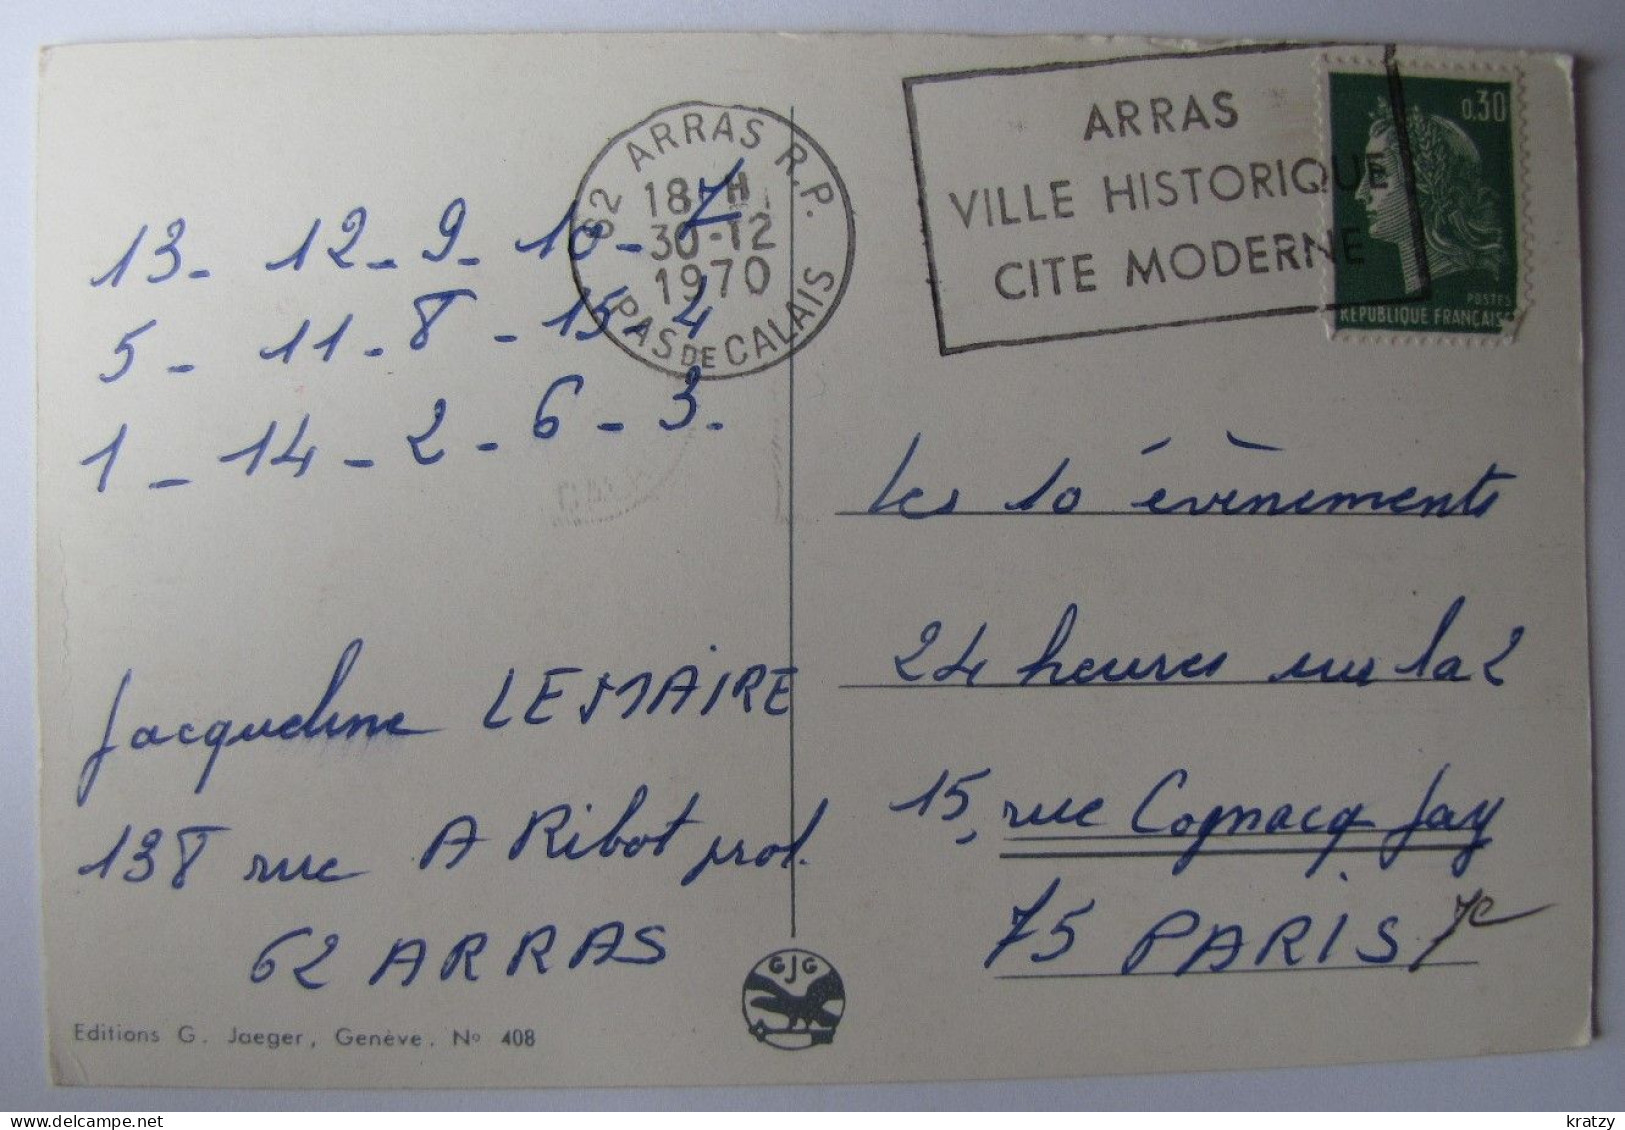 62 ARRAS R.P.
18H
30-12
1970
PAS DE CALAIS
ARRAS
VILLE HISTORIQUE
CITE MODERNE
0,30
POSTES
REPUBLIQUE FRANCAISE
13 - 12 - 9 - 10 - 7
5 - 11 - 8 - 15 - 4
1 - 14 - 2 - 6 - 3.
Jacqueline LEMAIRE
138 rue A Ribot prol.
62 ARRAS
Les 10 évènements
24 heures sur la 2
15, rue Cognacq Jay
75 PARIS 7e
GJG
Editions G. Jaeger, Genève, No 408
kratzy